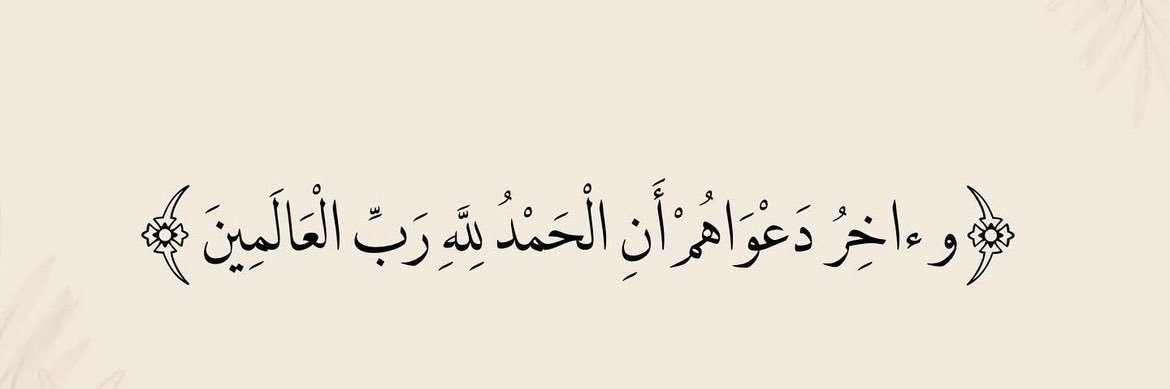 ﴿و ءاخِرُ دَعْوَاهُمْ أَنِ الْحَمْدُ لِلَّهِ رَبِّ الْعَالَمِينَ﴾